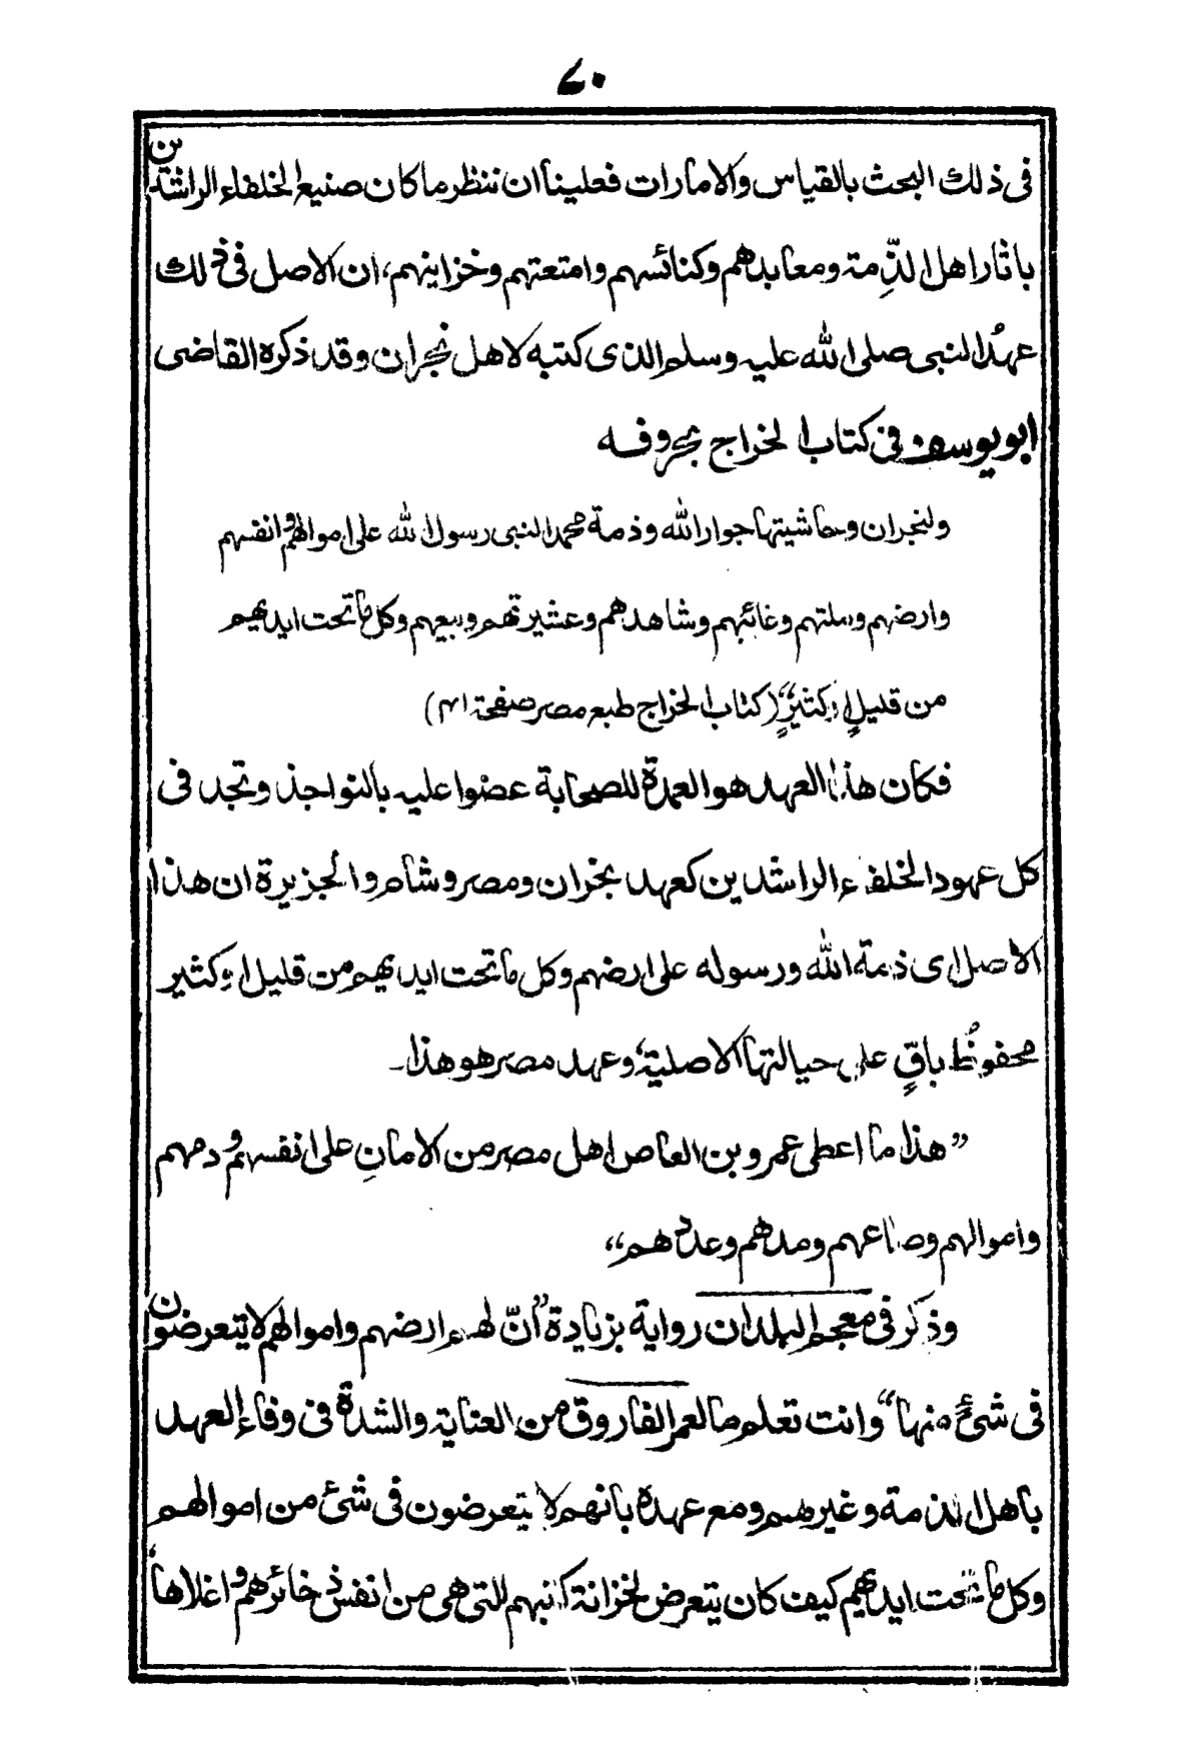 ۷۰
فی ذلك البحث بالقیاس والامارات فعلینا ان ننظر ما کان صنیع الخلفاء الراشدین
باثار اهل الذِّمة ومعابدهم وکنائسهم وامتعتهم وخزاینهم، ان الاصل فی ذلك
عهدُ النبی صلی الله علیه وسلم الذی کتبه لاهل نجران وقد ذکره القاضی
ابو یوسف فی کتاب الخراج بحروفه
ولنجران وحاشیتها جوار الله وذمة محمد النبی رسول الله علی اموالهم وانفسهم
وارضهم وملتهم وغائبهم وشاهدهم وعشیرتهم وبیعهم وکل ما تحت ایدیهم
من قلیلٍ او کثیرٍ“ (کتاب الخراج طبع مصر صفحة ۴۱)
فکان هذا العهد هو العمدة للصحابة عضوا علیه بالنواجذ وتجد فی
کل عهود الخلفاء الراشدین کعهد نجران ومصر وشام والجزیرة ان هذا
الاصل ای ذمة الله ورسوله علی ارضهم وکل ما تحت ایدیهم من قلیل او کثیر
محفوظٌ باقٍ علی حیالتها الاصلیة، وعهد مصر هو هذا۔
”هذا ما اعطی عمرو بن العاص اهل مصر من الامانِ علی انفسهم ودمهم
واموالهم وصاعهم ومدهم وعددهم“
وذکر فی معجم البلدان روایة بزیادة ”انّ لهم ارضهم واموالهم لا یتعرضون
فی شیٔ منها“ وانت تعلم ما لعمر الفاروق من العنایة والشدة فی وفاء العهد
باهل الذمة وغیرهم ومع عهده بانهم لا یتعرضون فی شیٔ من اموالهم
وکل ما تحت ایدیهم کیف کان یتعرض لخزانة کتبهم للتی هی من انفس ذخائرهم واغلاها